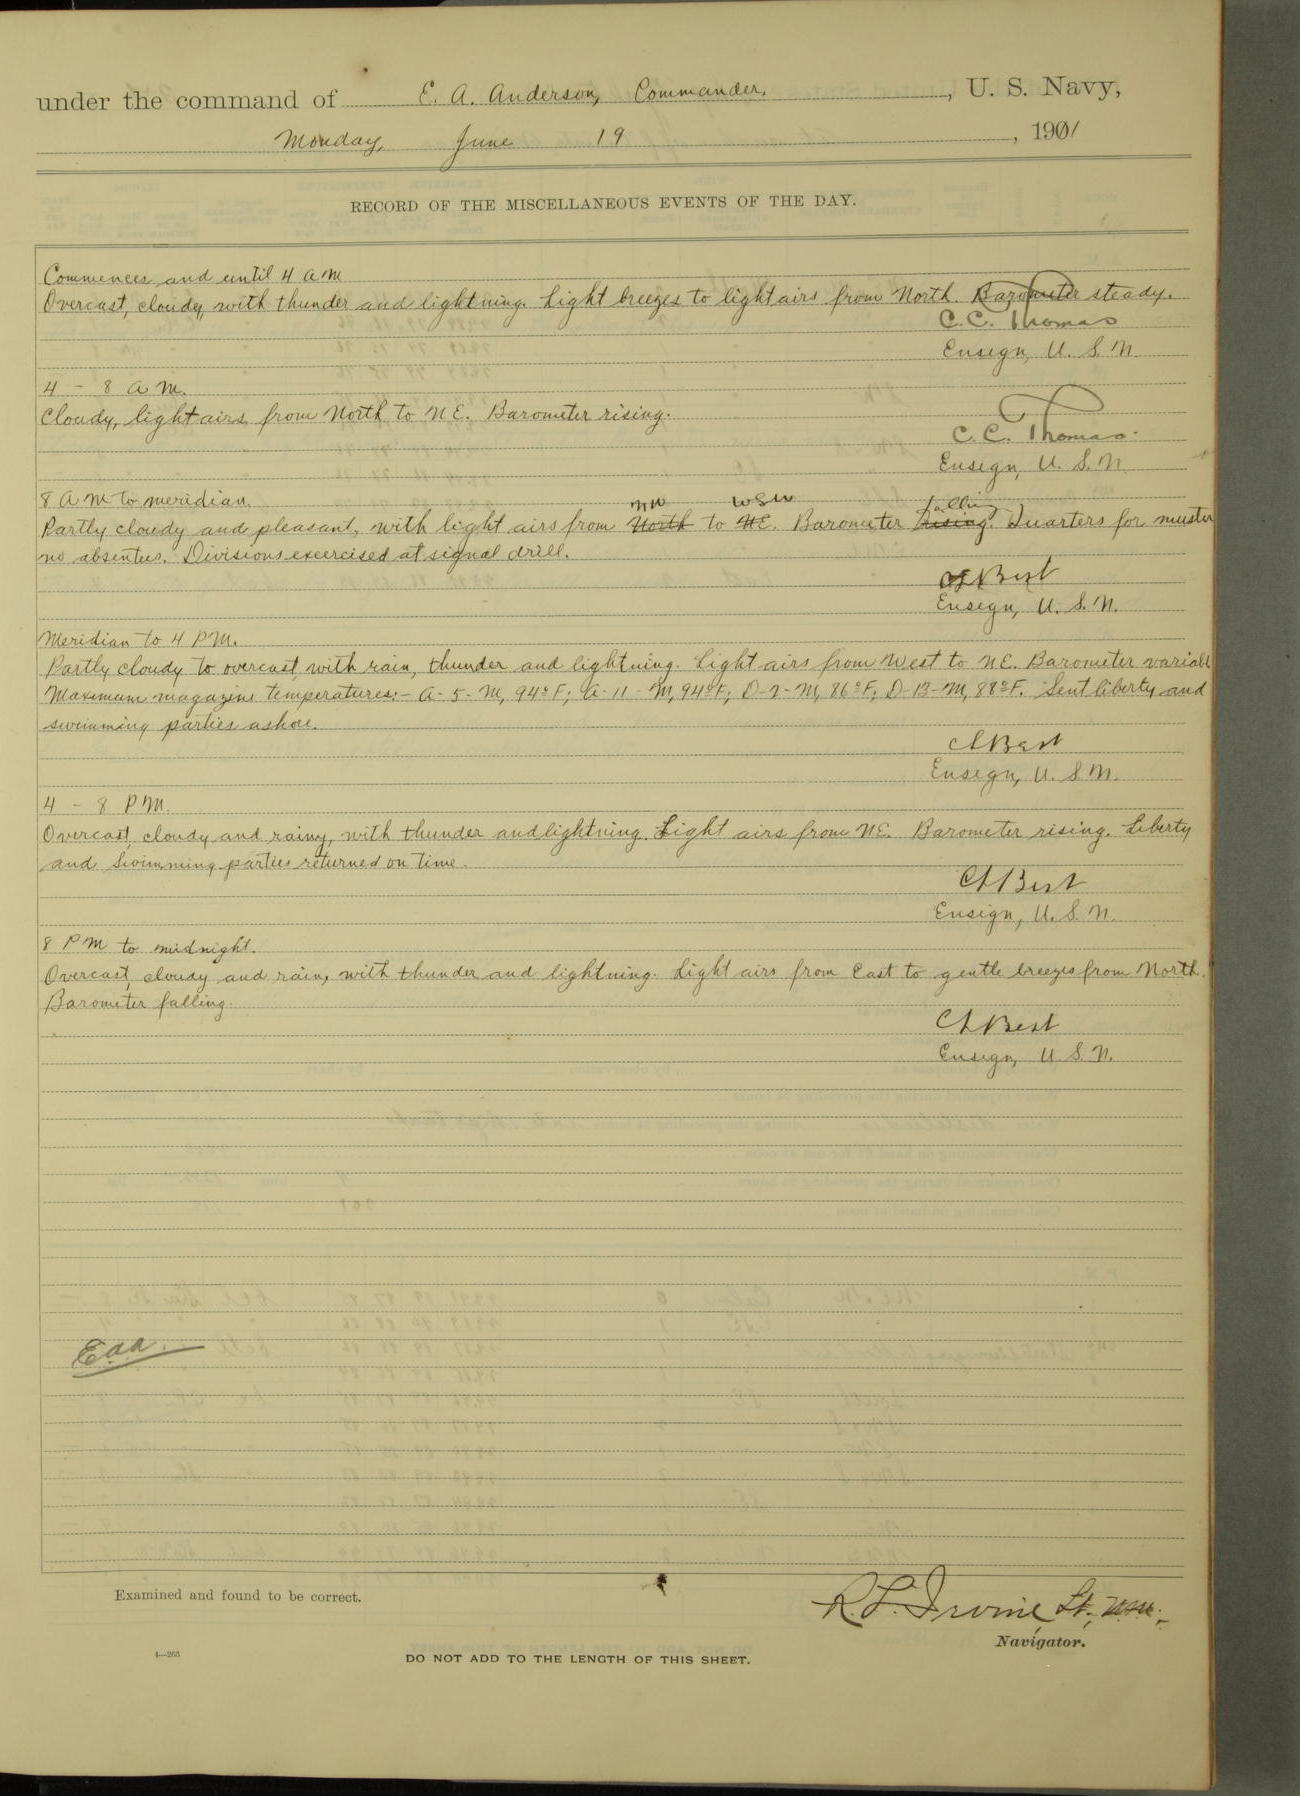 under the command of E. A. Anderson, Commander, , U. S. Navy,
Monday, June 19 , 1901
RECORD OF THE MISCELLANEOUS EVENTS OF THE DAY.
Commences and until 4 a m
Overcast, cloudy, with thunder and lightning. Light breezes to light airs from North. Barometer steady.
C. C. Thomas
Ensign, U. S. N.
4 - 8 a m.
Cloudy, light airs from North to NE. Barometer rising.
C. C. Thomas.
Ensign, U. S. N.
8 a m to meridian.
NW WSW falling
Partly cloudy and pleasant, with light airs from North to NE. Barometer rising. Quarters for muster
no absentees. Divisions excercised at signal drill.
Best
Ensign, U. S. N.
Meridian to 4 P M.
Partly cloudy to overcast, with rain, thunder and lightning. Light airs from West to NE. Barometer variabl
Maximum magazine temperatures:- A-5-M, 94°F; A-11-M, 94°F; D-2-M, 86°F; D-13-M, 88°F. Sent liberty and
swimming parties ashore.
Best
Ensign, U. S. N.
4 - 8 P M.
Overcast, cloudy and rainy, with thunder and lightning. Light airs from NE. Barometer rising. Liberty
and swimming parties returned on time.
Best
Ensign, U. S. N.
8 P M to midnight.
Overcast, cloudy and rain, with thunder and lightning. Light airs from East to gentle breezes from North.
Barometer falling.
Best
Ensign, U. S. N.
Eaa.
Examined and found to be correct.
R. L. Irvine Lt., USN.
Navigator.
4—265
DO NOT ADD TO THE LENGTH OF THIS SHEET.